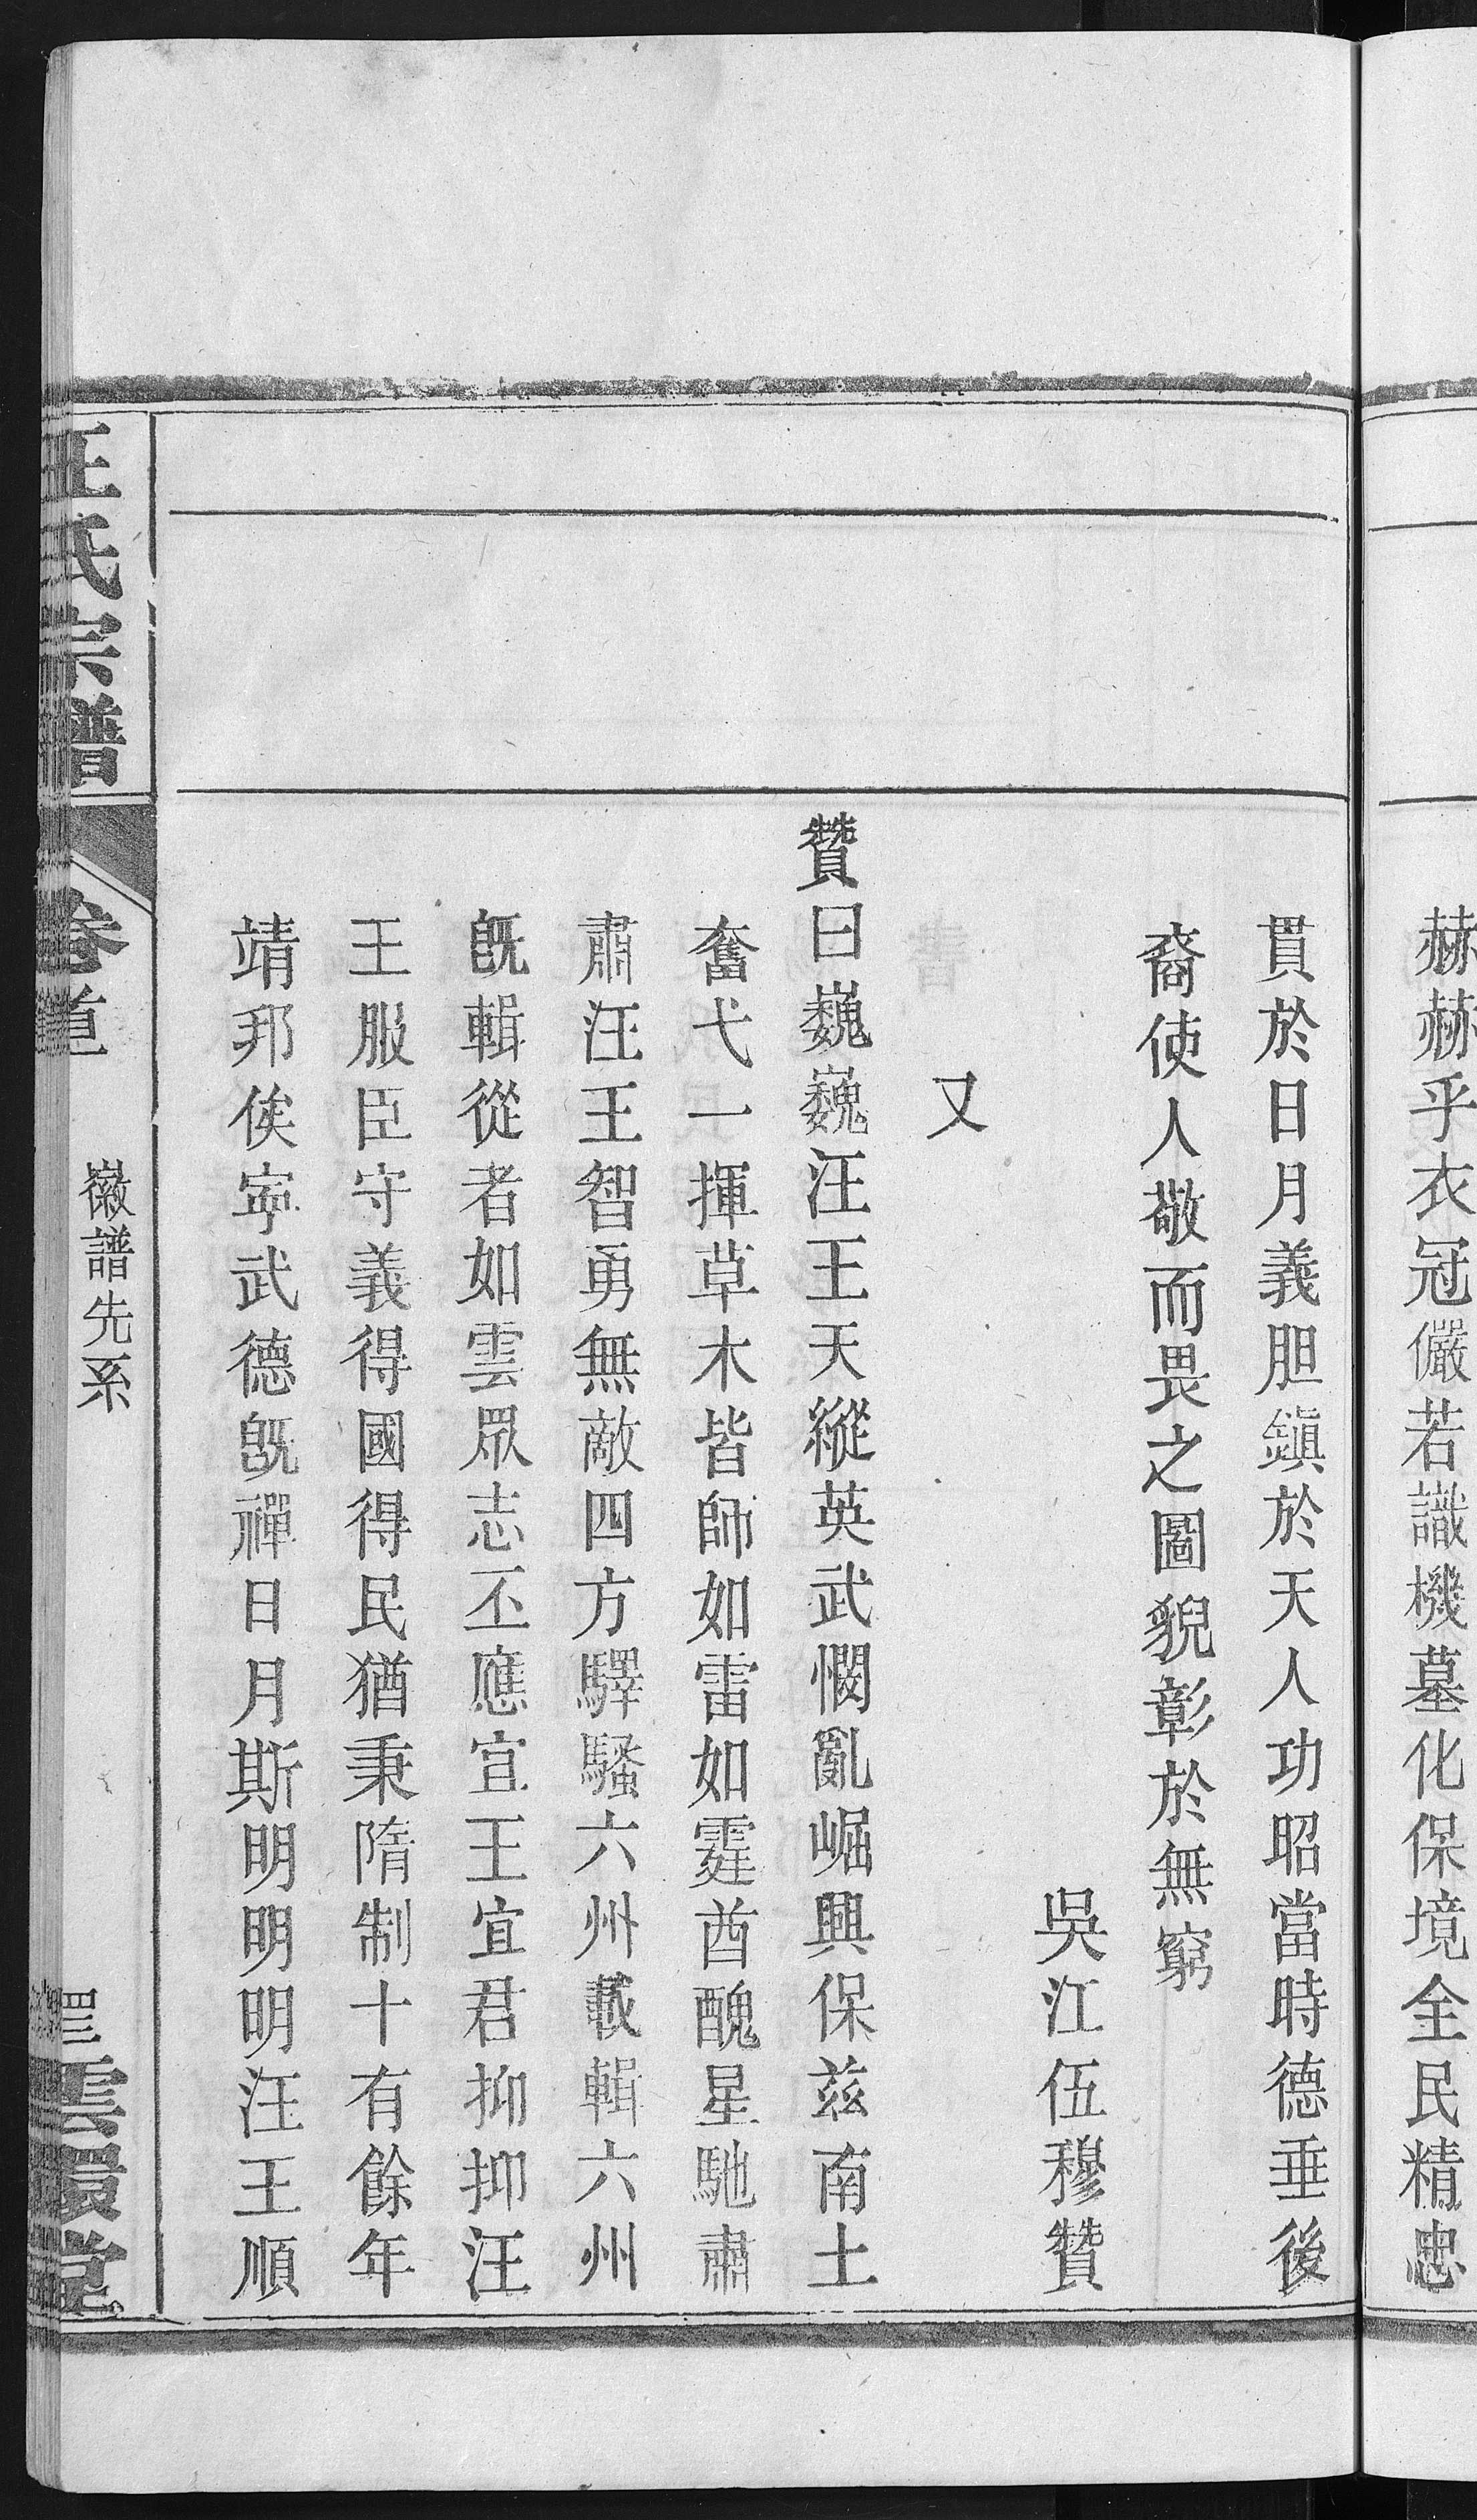 赫赫乎衣冠儼若識機墓化保境全民精忠
貫於日月義胆鎮於天人功昭當時德垂後
裔使人敬而畏之圖貌彰於無窮
吳江伍穆贊
又
贊曰巍巍汪王天縱英武憫亂崛興保茲南土
奮弋一揮草木皆師如雷如霆酋醜星馳肅
肅汪王智勇無敵四方驛騷六州載輯六州
旣輯從者如雲眾志丕應宜王宜君抑抑汪
王服臣守義得國得民猶秉隋制十有餘年
靖邦俟寧武德旣禪日月斯明明明汪王順
汪氏宗譜
卷首
徽譜先系
雲環堂